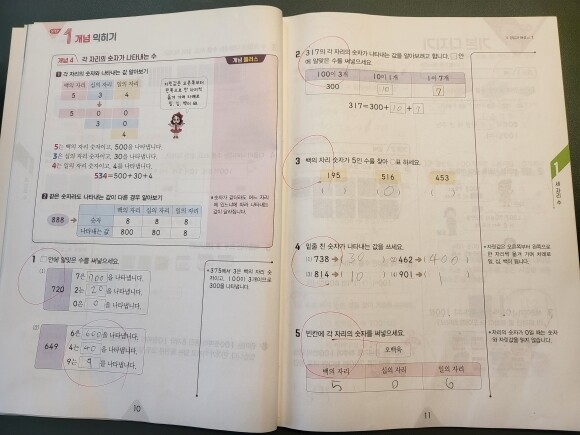 1 개념 익히기
개념 4 각 자리의 숫자가 나타내는 수 개념 플러스
1 각 자리의 숫자와 나타내는 값 알아보기
백의 자리 십의 자리 일의 자리
5 3 4
5 0 0
3 0
4
5는 백의 자리 숫자이고, 500을 나타냅니다.
3은 십의 자리 숫자이고, 30을 나타냅니다.
4는 일의 자리 숫자이고, 4를 나타냅니다.
534=500+30+4
2 같은 숫자라도 나타내는 값이 다른 경우 알아보기
백의 자리 십의 자리 일의 자리
888 숫자 8 8 8
나타내는 값 800 80 8
1 □ 안에 알맞은 수를 써넣으세요.
(1)
720
7은 700을 나타냅니다.
2는 20을 나타냅니다.
0은 0을 나타냅니다.
(2)
649
6은 600을 나타냅니다.
4는 40을 나타냅니다.
9는 9를 나타냅니다.
10
2 317의 각 자리의 숫자가 나타내는 값을 알아보려고 합니다. □ 안
에 알맞은 수를 써넣으세요.
100이 3개 10이 1개 1이 7개
300 10 7
317=300+10+7
3 백의 자리 숫자가 5인 수를 찾아 ○표 하세요.
195 516 453
4 밑줄 친 숫자가 나타내는 값을 쓰세요.
(1) 738 (2) 462
(3) 814 (10) (4) 901 (1)
5 빈칸에 각 자리의 숫자를 써넣으세요.
오백육
백의 자리 십의 자리 일의 자리
5 0 6
11
1
세 자리 수